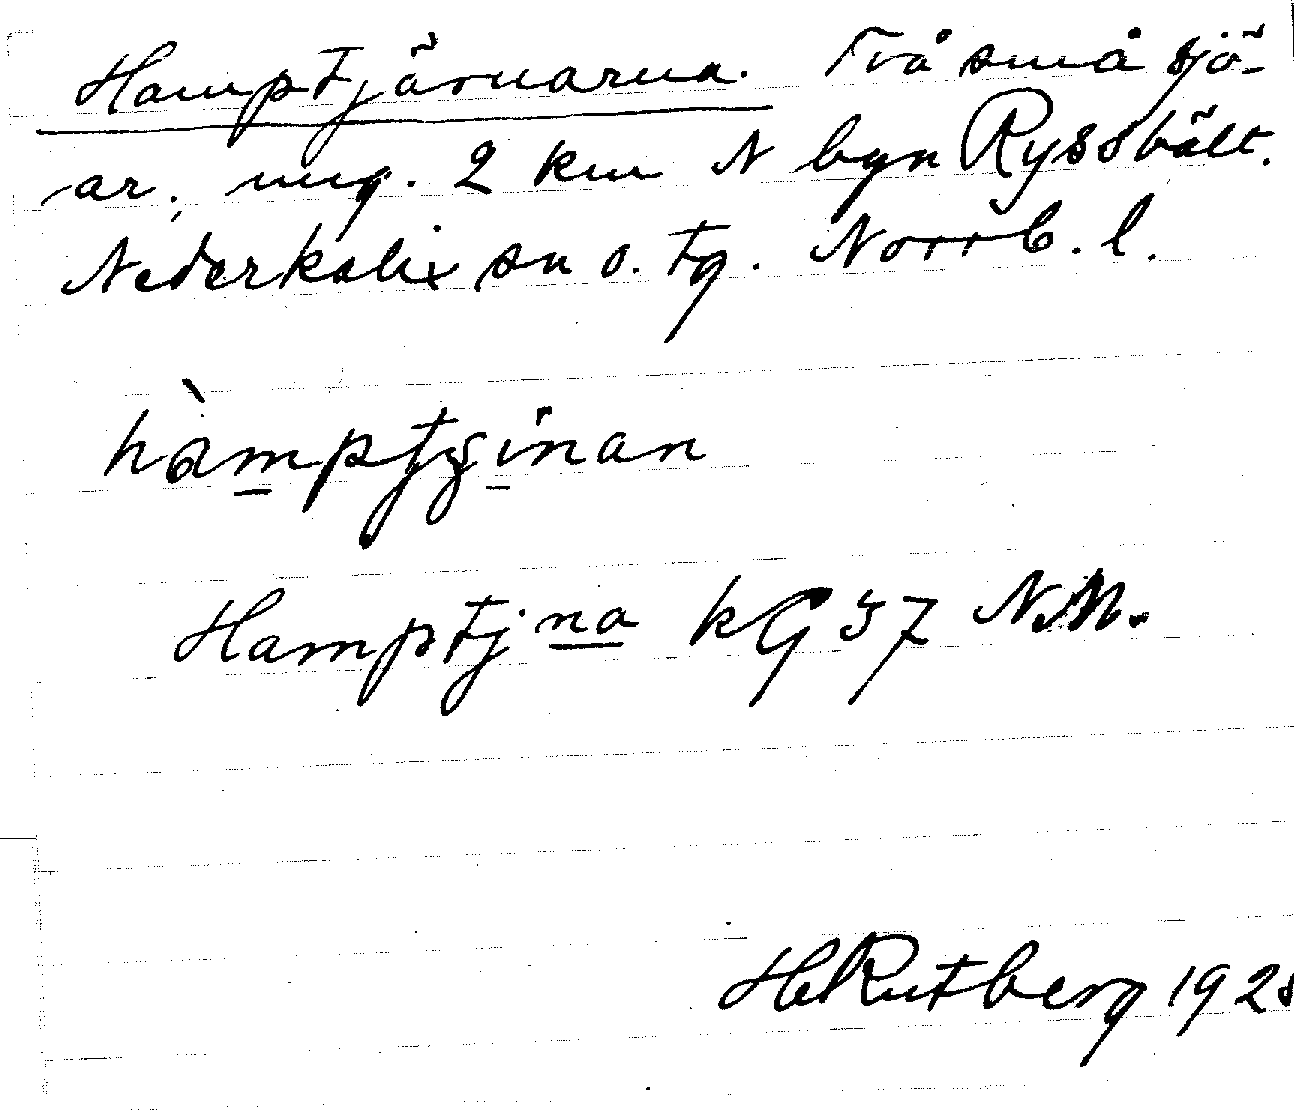 Hamptjärnarna. Två små sjö-
ar, ung. 2 km N byn Ryssbält.
Nederkalix sn o. tg. Norrb. l.
hàmptjinan
Hamptjna kG 37 N.M.
H Rutberg 192